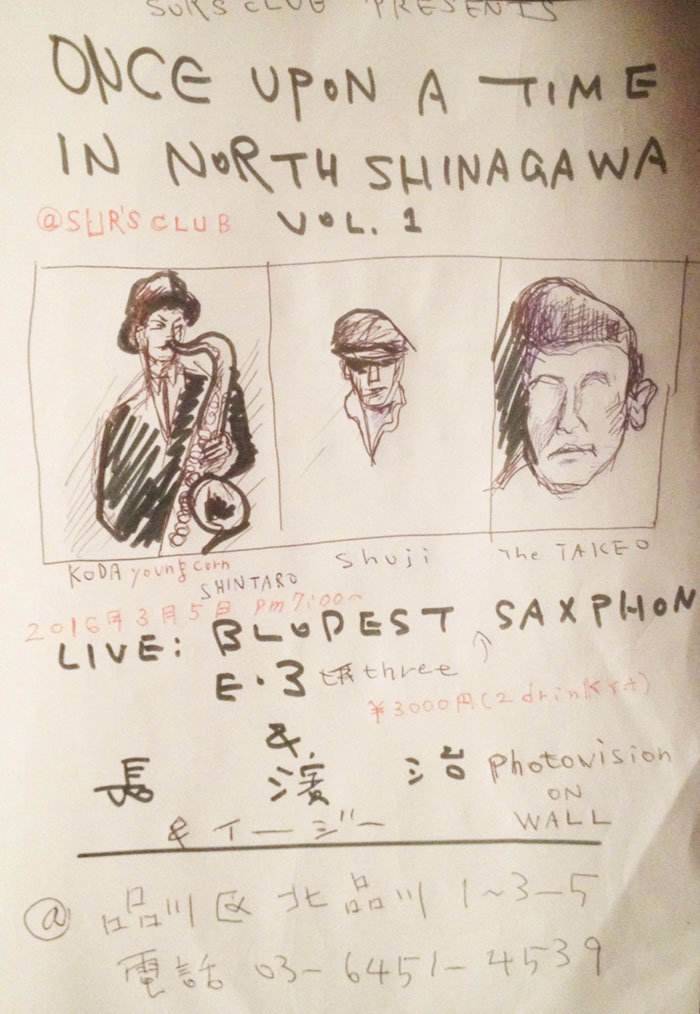 SUR'S CLUB PRESENTS
ONCE UPON A TIME
IN NORTH SHINAGAWA
@SUR'S CLUB VOL. 1
KODA young corn SHINTARO
Shuji
The TAKEO
2016年3月5日 pm7:00~
LIVE: BLUDEST SAXPHON
E.3 three
¥3000円(2drink付)
&
長 濱 治 photovision
ON
WALL
& イージー
@ 品川区 北品川 1~3-5
電話 03-6451-4539